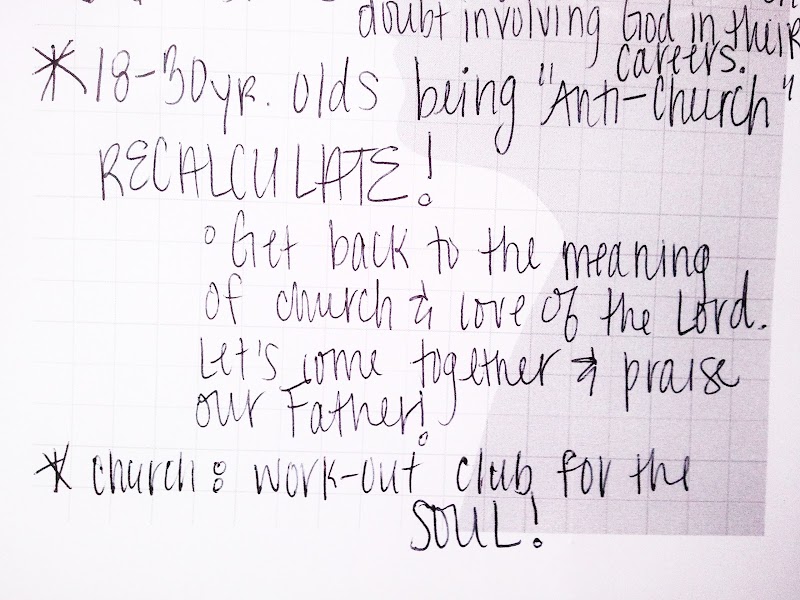 doubt involving God in their
careers.
* 18-30yr. olds being "Anti-Church"
RECALCULATE!
° Get back to the meaning
of church & love of the Lord.
Let's come together & praise
our Father!
* church: work-out club for the
SOUL!